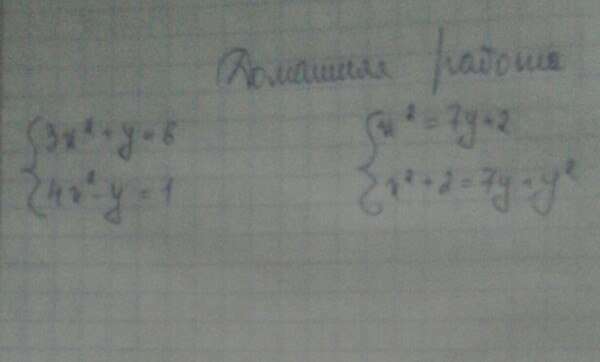 Домашняя работа
3x² + y = 6
4x² - y = 1
x² = 7y + 2
x² + 2 = 7y + y²